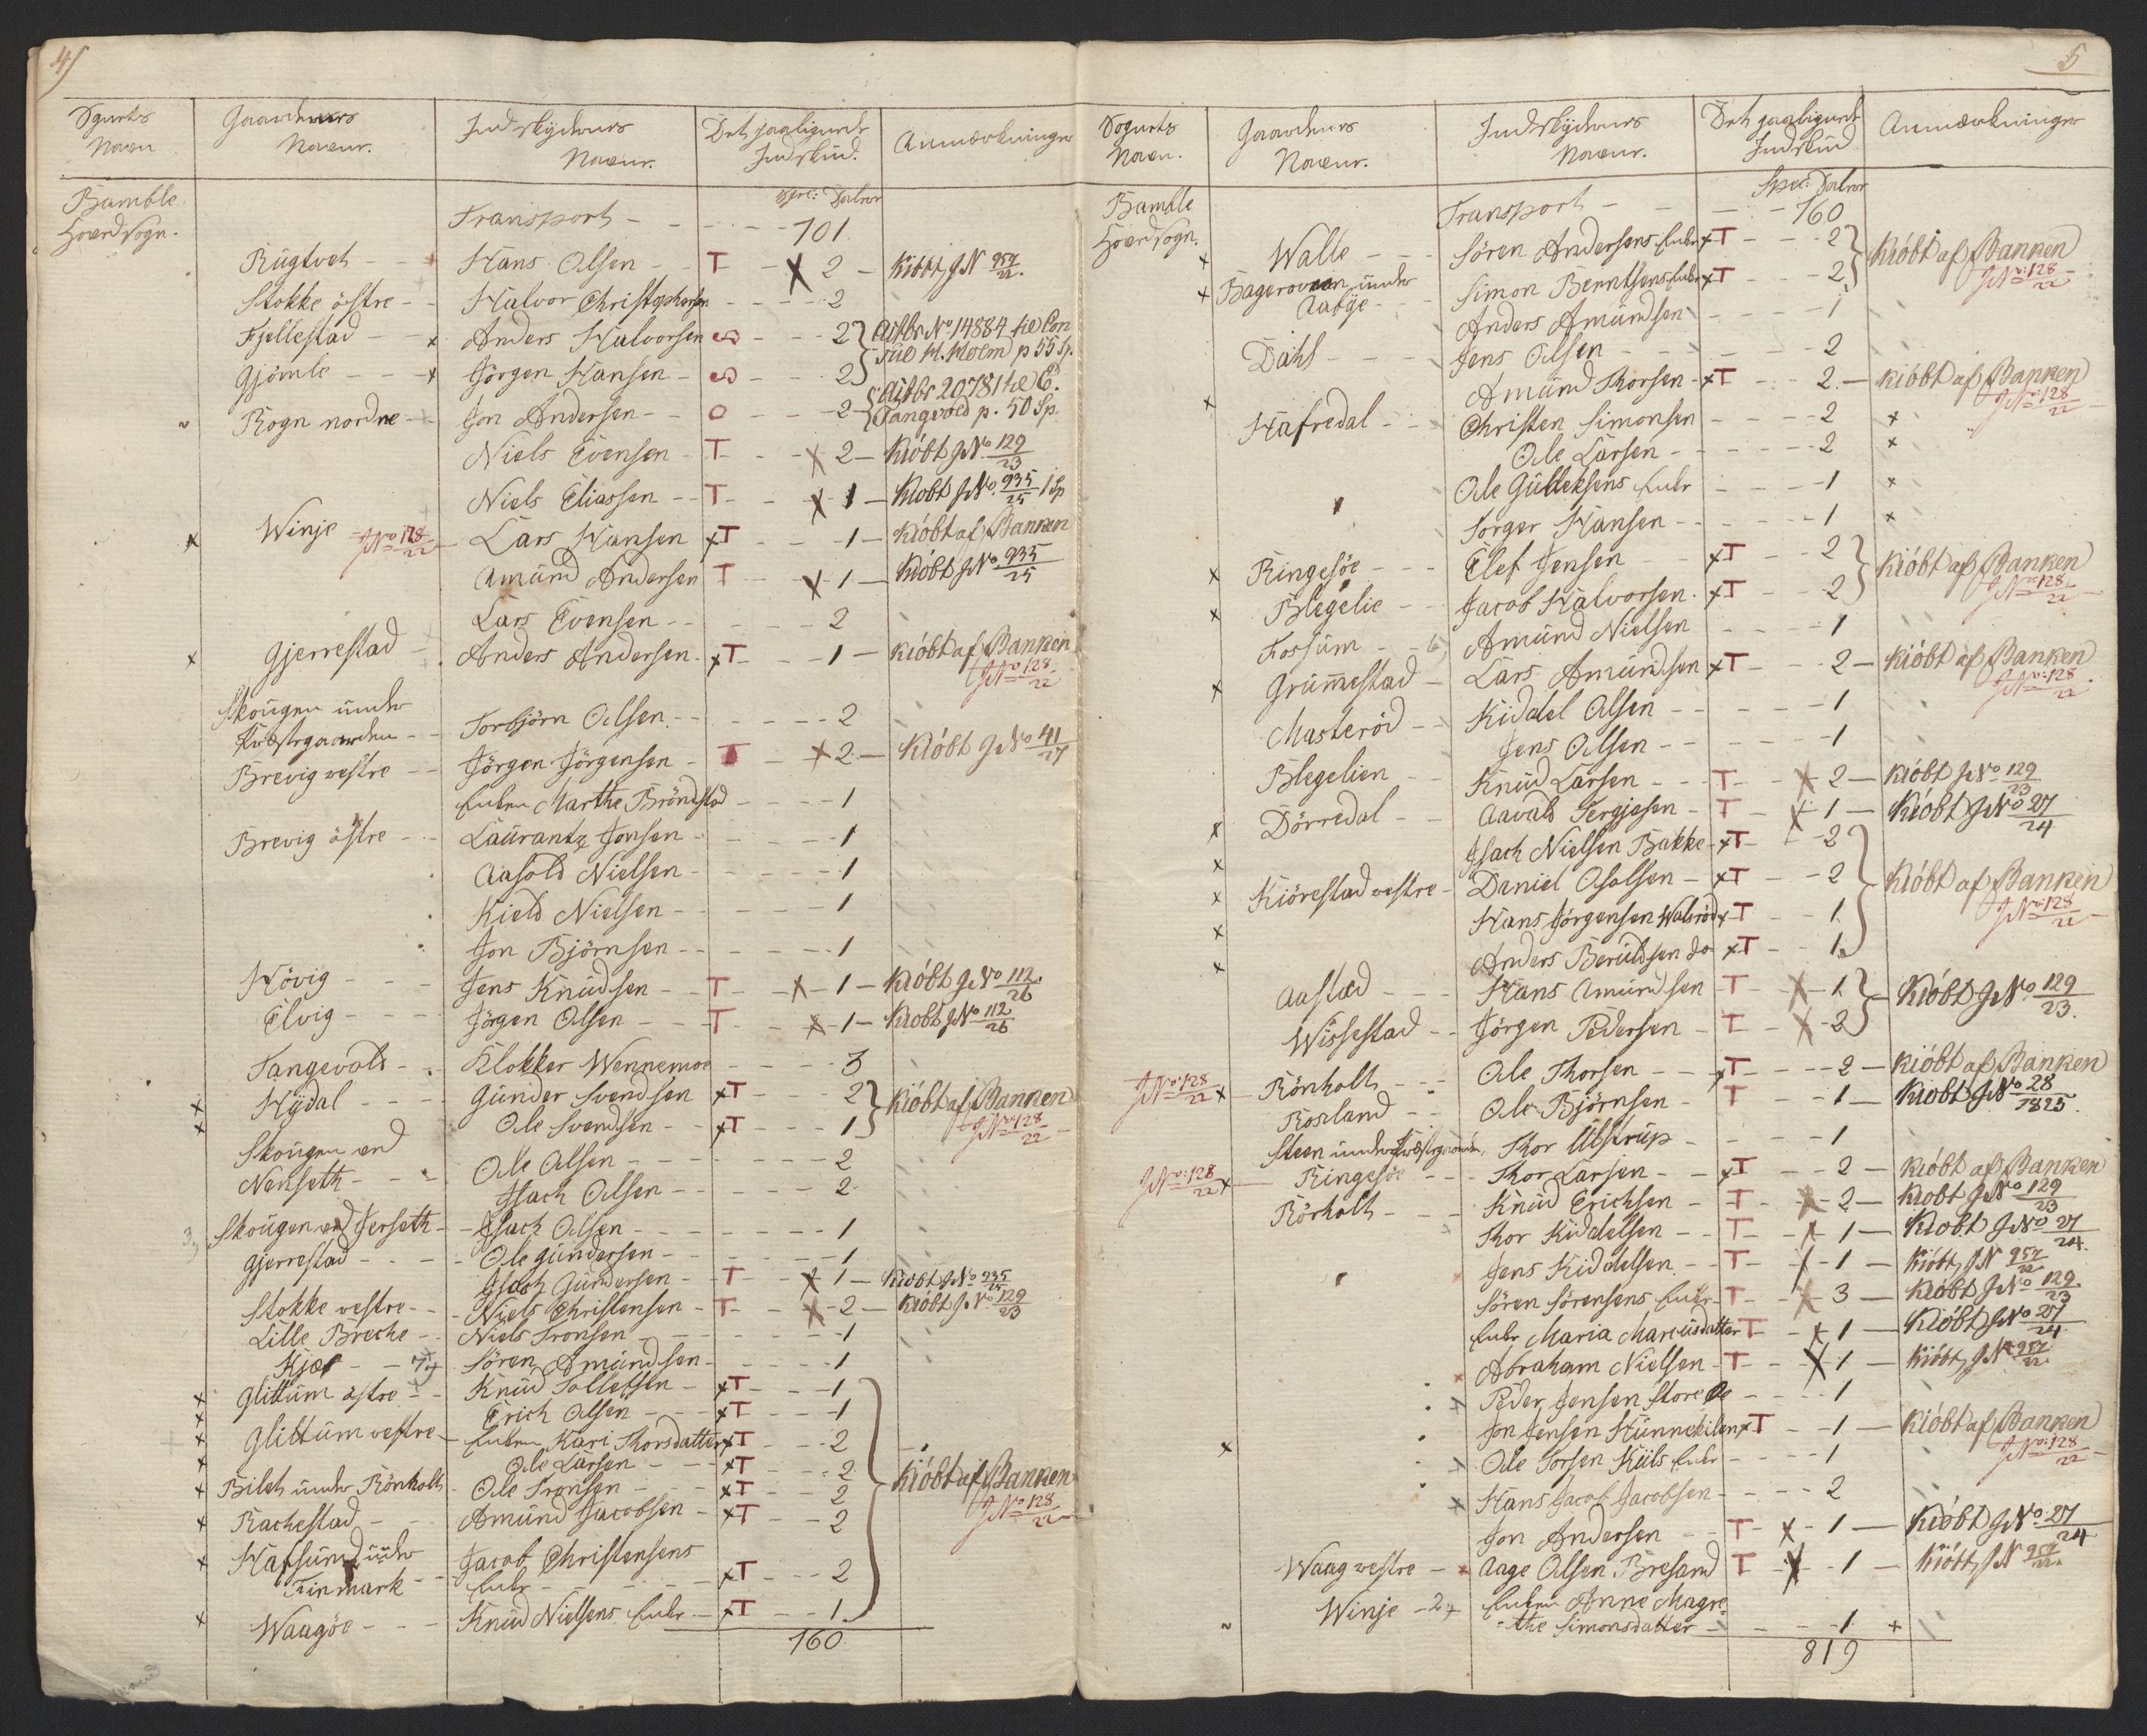 4)
Sognets Navn | Gaardenes Navne. | Indskydernes Navne. | Det paaligende Indskud. | Anmærkninger
Bamble Hovedsogn. | Transport - | Spec: Daler 701
Rugtvet - Hans Olsen - T - X 2 - Kiöbt, J N 957/22.
Stokke östre - Halvor Christophersen - 2
Fjellestad - x Anders Halvorsen S - 2 } Afsbr No 14884 til Con
Gjömle - x Jörgen Hansen - S - 2 } sul H. Moem p 55 Sp.
Rogn nordre - Jon Andersen - O - 2 { Afsbr 20781 til E. Tangvald p. 50 Sp.
Niels Evensen - T - X 2 - Kiöbt J No 129/23
Niels Eliassen - T - X 1 - Kiöbt J No 935/25 1 Sp
x Winje J No 128/22 - Lars Hansen xT - 1 - Kiöbt af Banken
Amund Andersen T - X 1 - Kiöbt J No 935/25
Lars Evensen - 2
x Gjerrestad - Anders Andersen - xT - 1 - Kiöbt af Banken J No 128/22
Skougen under Præstegaarden - Torbjörn Olsen - 2
Brevig vestre - Jörgen Jörgensen - T - X 2 - Kiöbt J No 41/27
Enken Marthe Bröndstad - 1
Brevig östre - Laurantz Jensen - 1
Aasold Nielsen - 1
Kield Nielsen - 1
Jon Björnsen - 1
Hövig - Jens Knudsen - T - X 1 - Kiöbt J No 112/26
Elvig - Jörgen Olsen - T - X 1 - Kiöbt J No 112/26
Tangevald - Klokker Wennemoe - 3
x Hydal - Gunder Svendsen xT - 2 } Kiöbt af Banken
x Ole Svendsen - xT - 1 } J No 128/22
Skougen ved Nenseth - Ole Olsen - 2
Isach Olsen - 2
3, Skougen ved Jerseth - Isach Olsen - 1
Gjerrestad - Ole Gundersen - 1
Isach Gundersen - T - X 1 - Kiöbt J No 935/25
Stokke vestre - Niels Christensen - T - X 2 - Kiöbt J No 129/23
Lille Breche - Niels Tronsen - 1
Kjær - Sören Amundsen - 1
x Glittum östre - Knud Tollefsen - xT - 1
x Erich Olsen - xT - 1
x Glittum vestre - Enken Kari Thorsdatter xT - 2
x Ole Larsen - xT - 2
x Bilet under Rönholt - Ole Tronsen - xT - 2 } Kiöbt af Banken
x Rachestad - Amund Jacobsen - xT - 2 J No 128/22
x Hafsund under Finmark - Jacob Christensens Enke - xT - 2
x Waagöe - Knud Nielsens Enke - xT - 1.
160
5
Sognets Navn. | Gaardenes Navne. | Indskydernes Navne. | Det paaligende Indskud | Anmærkninger
Bamble Hovedsogn. | Transport - | Spec: Daler 160
x Walle - Sören Andersens Enke xT - 2 } Kiöbt af Banken
x Bageroven under Aabye - Simon Berntsens Enke xT - 2 } J No 128/22
Anders Amundsen - 1
Dahl - Jens Olsen - 2
x Amund Thorsen - xT - 2 - Kiöbt af Banken J No 128/22
Hafredal - Christen Simonsen - 2 x
Ole Larsen - 2 x
Ole Gulleksens Enke - 1 x
Torger Hansen - 1 x
x Ringesöe - Elef Jensen - xT - 2 } Kiöbt af Banken
x Blegelie - Jacob Halvorsen - xT - 2 } J No 128/22
Fossum - 6, Amund Nielsen - 1
x Grumestad - Lars Amundsen xT - 2 - Kiöbt af Banken J No 128/22
Masteröd - Kiddel Olsen - 1
Jens Olsen - 1
Blegelien - Knud Larsen - T - X 2 - Kiöbt J No 129/23
x Dörredal - Aavald Tergjesen - T - X 1 - Kiöbt J No 27/24
x Isach Nielsen Bakke - xT - 2
x Kiörestad vestre - Daniel Olsen - xT - 2 } Kiöbt af Banken
x Hans Jörgensen Walöröd xT - 1 J No 128/22
x Anders Beruldsen do xT - 1
Aastad - Hans Amundsen - T - X 1 } Kiöbt J No 129/23.
Wissestad - Jörgen Pedersen - T - X 2 }
J No 128/22 x Rönholt - Ole Thorsen - xT - 2 - Kiöbt af Banken
Rosland - Ole Björnsen - T - 1 - Kiöbt J No 28/1825.
Steen under Præstegaarden, Thor Ulstrup - 1
J No 128/22 x Ringesöe - Thor Larsen - xT - 2 - Kiöbt af Banken
Rörholt - Knud Erichsen - T - X 2 - Kiöbt J No 129/23
Thor Kiddelsen - T - X 1 - Kiöbt J No 27/24.
Jens Kiddelsen - T - X 1 - Kiöbt, J N 957/22
Sören Sörensens Enke - T - X 3 - Kiöbt J No 129/23
Enke Maria Marcusdatter T - X 1 - Kiöbt J No 27/24
Abraham Nielsen - T - X 1 - Kiöbt, J N 957/22
Peder Jensen Store - 1
x Jon Jensen Hunnekilen xT - 1 - Kiöbt af Banken J No 128/22
Ole Torsen Kiils Enke - 1
Hans Jacob Jacobsen - 2
Jon Andersen - T - X 1 - Kiöbt J No 27/24
Waag vestre - Aage Olsen Bresand T - X 1 - Kiöbt, J N 957/22
Winje - 2, Enken Anne Magre-
the Simonsdatter - 1 +
819